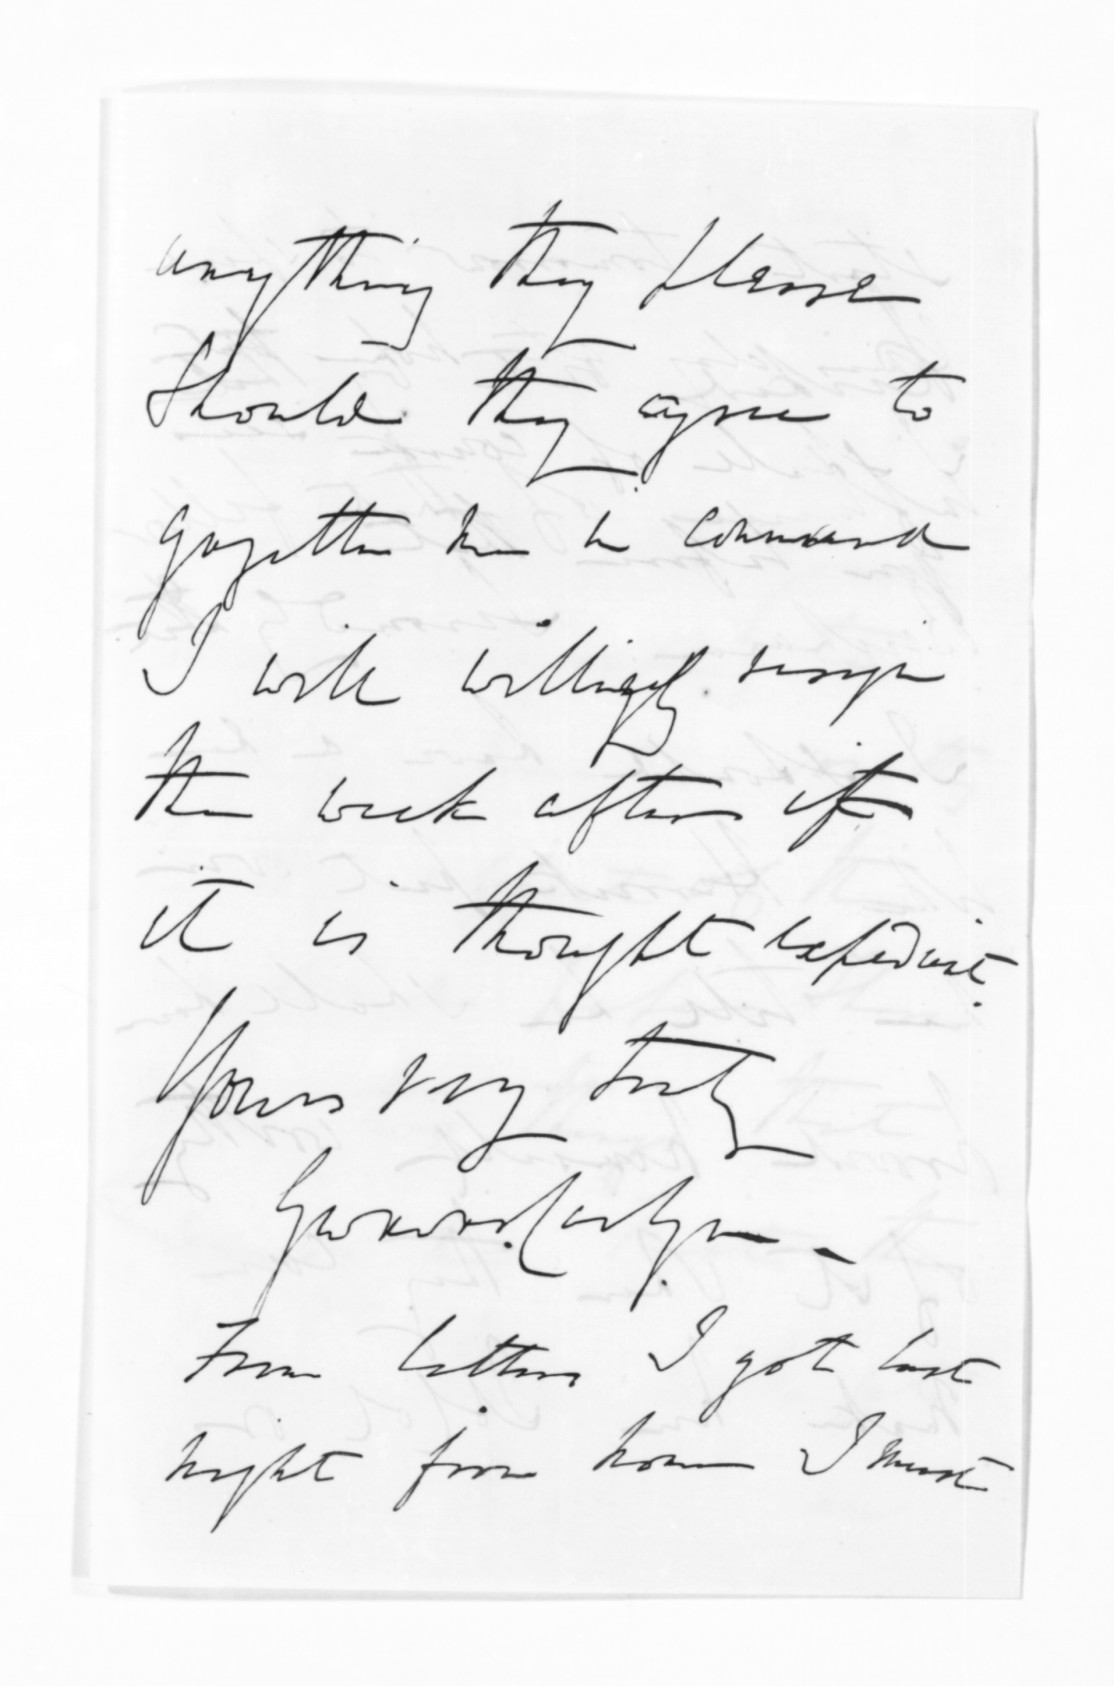 anything they please
Should they agree to
gazette me in command
I will willingly resign
the week after if
it is thought expedient.
Yours very truly
From letters I got last
night from home I must